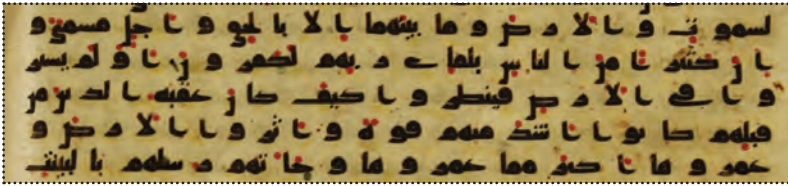 لسموت والارض وما بينهما الا بالحق واجل مسمى و
ان كثيرا من الناس بلقاى ربهم لكفرون اولم يسير
وا فى الارض فينظروا كيف كان عقبه الذين من
قبلهم كانوا اشد منهم قوة واثروا الارض و
عمروها اكثر مما عمروها وجاتهم رسلهم بالبينت